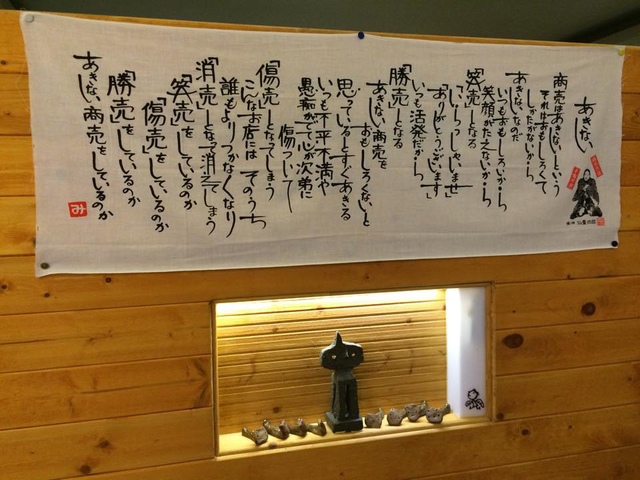 あきない
商売はあきないという
それはおもしろくて
しかたがないから
あきないなのだ
いつもおもしろいから
笑顔がたえないから
「笑売」となる
「いらっしゃいませ」
「ありがとうございます」
いつも活発だから
「勝売」となる
あきない商売を
おもしろくないと
思っているとすぐあきる
いつも不平不満や
愚痴がでて心が次第に
傷ついて
「傷売」となってしまう
こんなお店には そのうち
誰もよりつかなくなり
「消売」となって消えてしまう
「笑売」をしているのか
「傷売」をしているのか
「勝売」をしているのか
あきない商売をしているのか
み